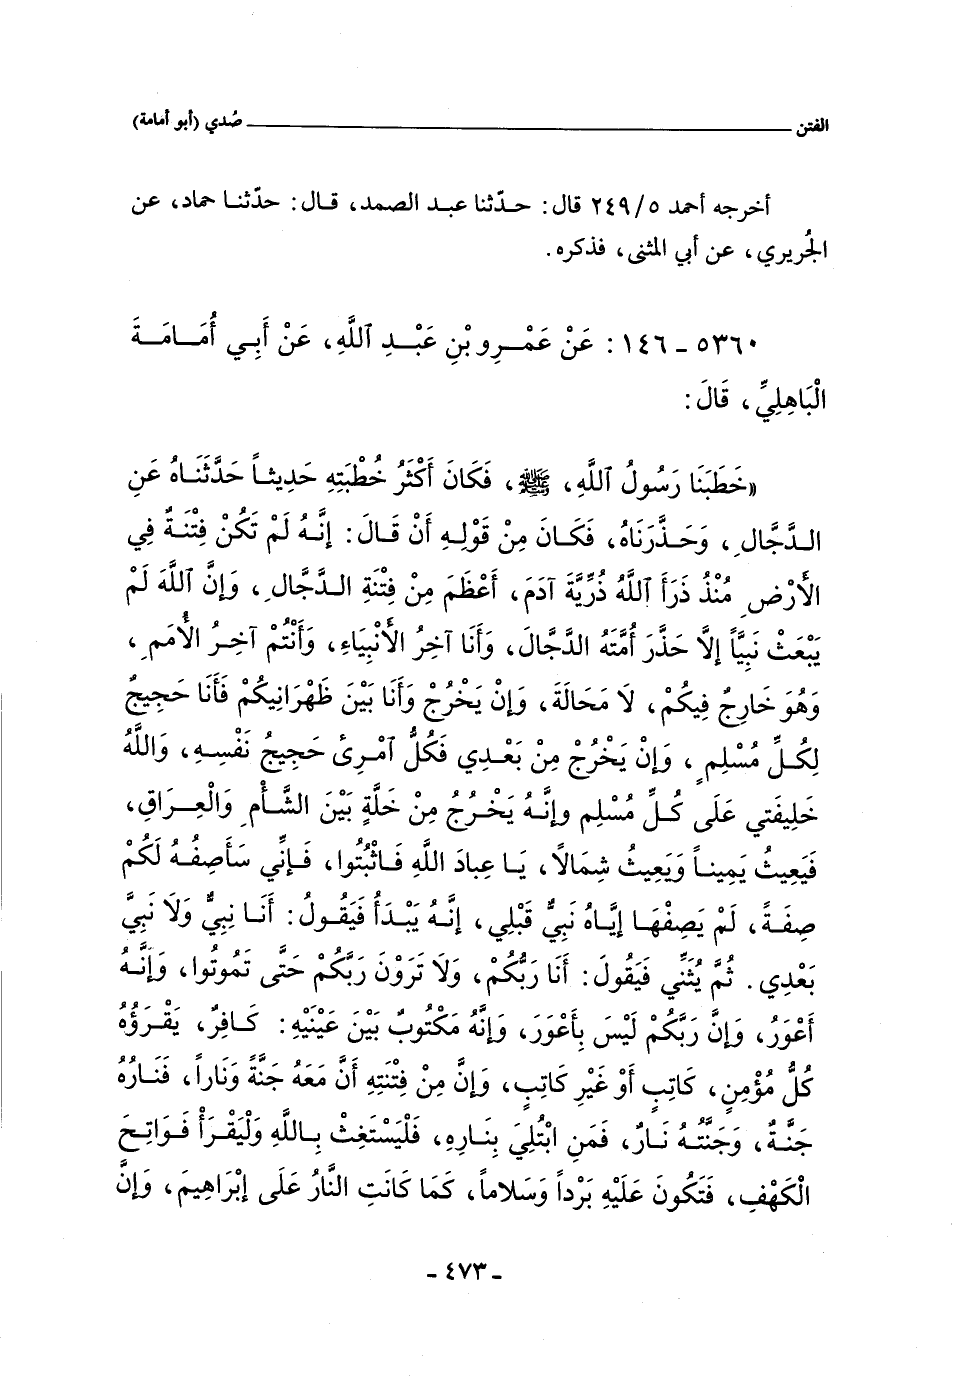 الفتن ــــــــــــ صُدي (أبو أمامة)
أخرجه أحمد ٢٤٩/٥ قال: حدّثنا عبد الصمد، قال: حدّثنا حماد، عن
الجُريري، عن أبي المثنى، فذكره.
٥٣٦٠ ـ ١٤٦: عَنْ عَمْرِو بْنِ عَبْدِ ٱللَّهِ، عَنْ أَبِي أُمَامَةَ
الْبَاهِلِيِّ، قَالَ:
«خَطَبَنَا رَسُولُ ٱللَّهِ، ﷺ، فَكَانَ أَكْثَرُ خُطْبَتِهِ حَدِيثاً حَدَّثَنَاهُ عَنِ
الدَّجَّالِ، وَحَذَّرَنَاهُ، فَكَانَ مِنْ قَوْلِهِ أَنْ قَالَ: إِنَّهُ لَمْ تَكُنْ فِتْنَةٌ فِي
الأَرْضِ مُنْذُ ذَرَأَ ٱللَّهُ ذُرِّيَّةَ آدَمَ، أَعْظَمَ مِنْ فِتْنَةِ الدَّجَّالِ، وَإِنَّ ٱللَّهَ لَمْ
يَبْعَثْ نَبِيًّا إِلَّا حَذَّرَ أُمَّتَهُ الدَّجَّالَ، وَأَنَا آخِرُ الأَنْبِيَاءِ، وَأَنْتُمْ آخِرُ الأُمَمِ،
وَهُوَ خَارِجٌ فِيكُمْ، لَا مَحَالَةَ، وَإِنْ يَخْرُجْ وَأَنَا بَيْنَ ظَهْرَانِيكُمْ فَأَنَا حَجِيجٌ
لِكُلِّ مُسْلِمٍ، وَإِنْ يَخْرُجْ مِنْ بَعْدِي فَكُلُّ ٱمْرِىءٍ حَجِيجُ نَفْسِهِ، وَاللَّهُ
خَلِيفَتي عَلَى كُلِّ مُسْلِم وإِنَّهُ يَخْرُجُ مِنْ خَلَّةٍ بَيْنَ الشَّأْمِ وَالْعِرَاقِ،
فَيَعِيثُ يَمِيناً وَيَعِيثُ شِمَالاً، يَا عِبادَ اللَّهِ فَاثْبُتُوا، فَإِنِّي سَأَصِفُهُ لَكُمْ
صِفَةً، لَمْ يَصِفْهَا إِيَّاهُ نَبِيٌّ قَبْلِي، إِنَّهُ يَبْدَأُ فَيَقُولُ: أَنَا نَبِيٌّ وَلَا نَبِيَّ
بَعْدِي. ثُمَّ يُثَنِّي فَيَقُولُ: أَنَا رَبُّكُمْ، وَلَا تَرَوْنَ رَبَّكُمْ حَتَّى تَمُوتُوا، وَإِنَّهُ
أَعْوَرُ، وَإِنَّ رَبَّكُمْ لَيْسَ بِأَعْوَرَ، وَإِنَّهُ مَكْتُوبٌ بَيْنَ عَيْنَيْهِ: كَافِرٌ، يَقْرَؤُهُ
كُلُّ مُؤْمِنٍ، كَاتِبٍ أَوْ غَيْرِ كَاتِبٍ، وَإِنَّ مِنْ فِتْنَتِهِ أَنَّ مَعَهُ جَنَّةً وَنَاراً، فَنَارُهُ
جَنَّةٌ، وَجَنَّتُهُ نَارٌ، فَمَنِ ابْتُلِيَ بِنَارِهِ، فَلْيَسْتَغِثْ بِاللَّهِ وَلْيَقْرَأْ فَوَاتِحَ
الْكَهْفِ، فَتَكُونَ عَلَيْهِ بَرْداً وَسَلاماً، كَمَا كَانَتِ النَّارُ عَلَى إِبْرَاهِيمَ، وَإِنَّ
ـ ٤٧٣ ـ